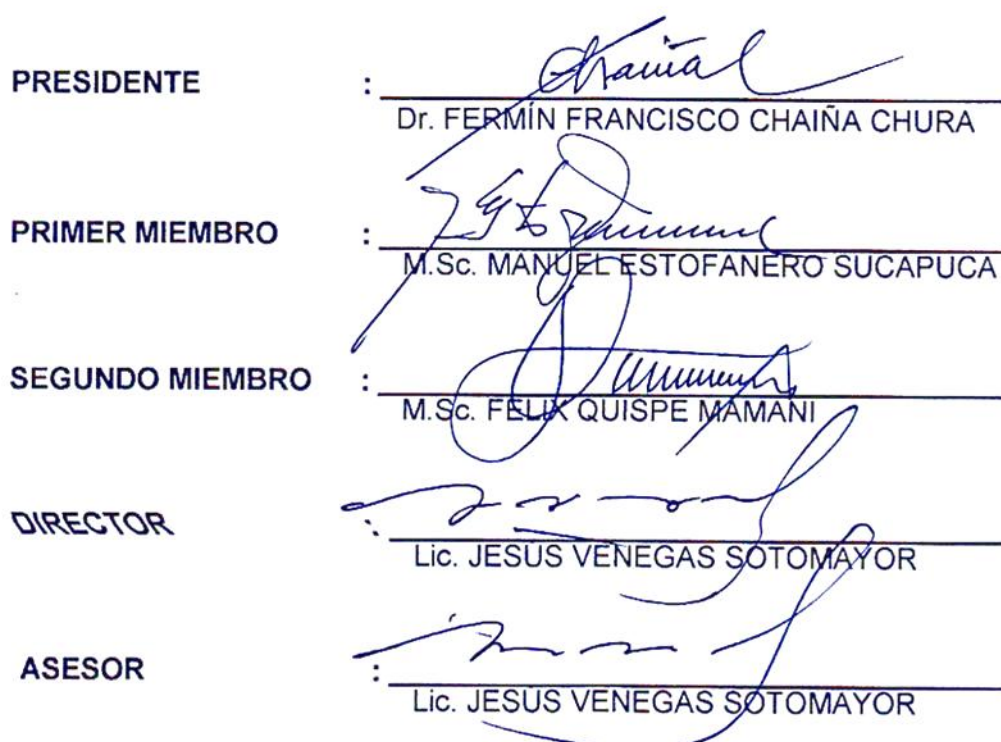 PRESIDENTE :
Dr. FERMÍN FRANCISCO CHAIÑA CHURA
PRIMER MIEMBRO :
M.Sc. MANUEL ESTOFANERO SUCAPUCA
SEGUNDO MIEMBRO :
M.Sc. FELIX QUISPE MAMANI
DIRECTOR :
Lic. JESÚS VENEGAS SOTOMAYOR
ASESOR :
Lic. JESÚS VENEGAS SOTOMAYOR